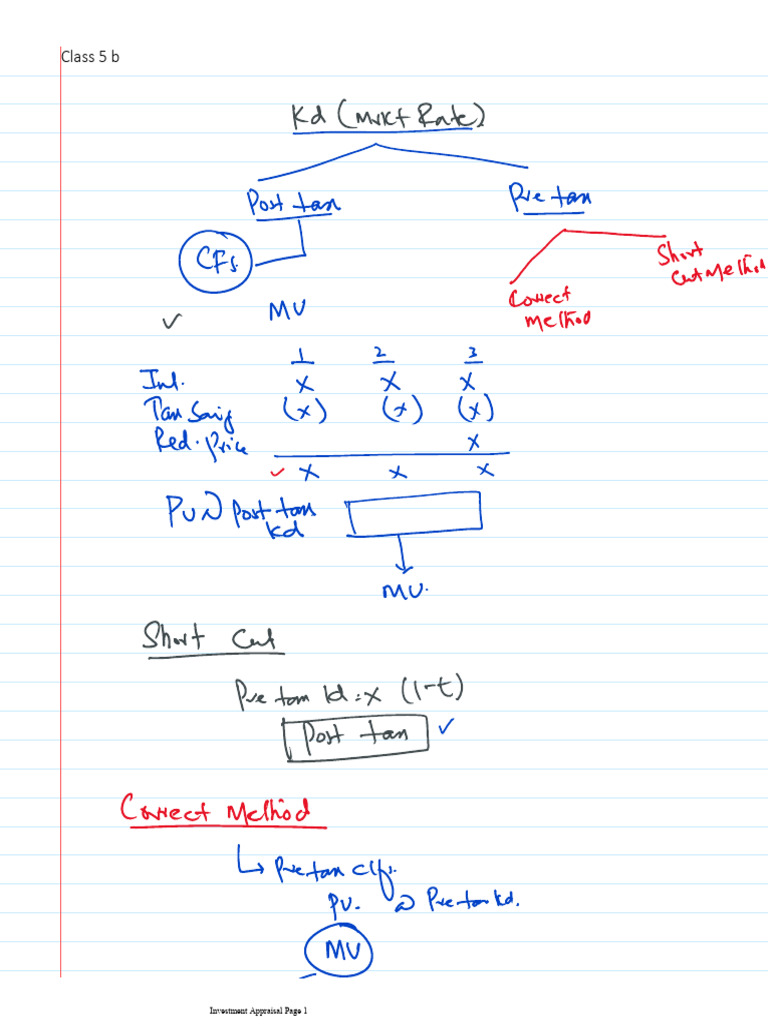 Class 5 b
Kd (Mrkt Rate)
Post tax
Pre tax
CFs.
Short
Cut Method
Correct
Method
MV
✓
1 2 3
Int. X X X
Tax Saving (x) (x) (x)
Red. Price X
✓ X X X
PV @ Post tax
kd
MV.
Short Cut
Pre tax kd = X (1-t)
Post tax ✓
Correct Method
↳ Pre tax c/fs.
PV. @ Pre tax kd.
MV
Investment Appraisal Page 1